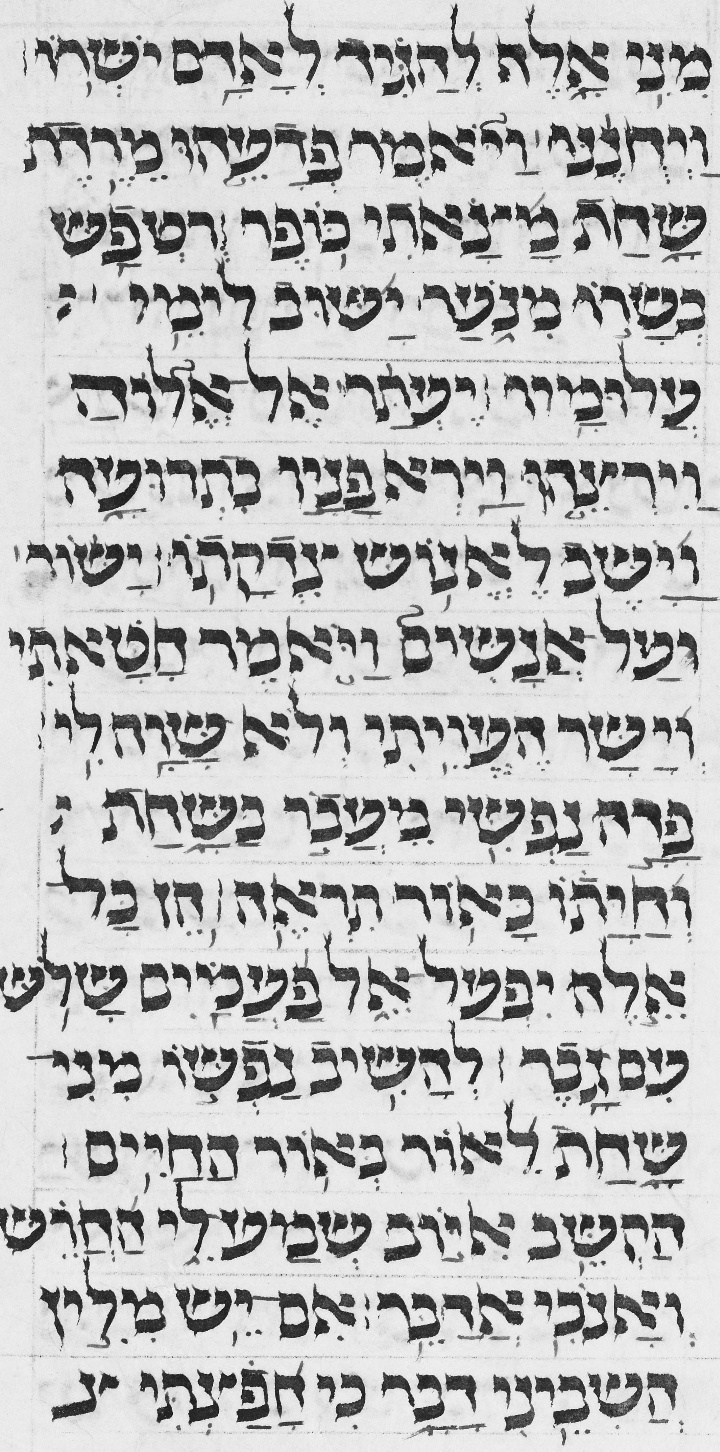 מִנִּי אָלֶף לְהַגִּיד לְאָדָם יׇשְׁרוֹ׃
וַיְחֻנֶּנּוּ וַיֹּאמֶר פְּדָעֵהוּ מֵרֶדֶת
שָׁחַת מָצָאתִי כוֹפֶר׃ רֻטְפַשׁ
בְּשָׂרוֹ מִנֹּעַר יָשׁוּב לִימֵי
עֲלוּמָיו׃ יֶעְתַּר אֶל אֱלוֹהַּ
וַיִּרְצֵהוּ וַיַּרְא פָּנָיו בִּתְרוּעָה
וַיָּשֶׁב לֶאֱנוֹשׁ צִדְקָתוֹ׃ יָשֹׁר
עַל אֲנָשִׁים וַיֹּאמֶר חָטָאתִי
וְיָשָׁר הֶעֱוֵיתִי וְלֹא שָׁוָה לִי׃
פָּדָה נַפְשִׁי מֵעֲבֹר בַּשָּׁחַת
וְחַיָּתוֹ בָּאוֹר תִּרְאֶה׃ הֶן כׇּל
אֵלֶּה יִפְעַל אֵל פַּעֲמַיִם שָׁלוֹשׁ
עִם גָּבֶר׃ לְהָשִׁיב נַפְשׁוֹ מִנִּי
שָׁחַת לֵאוֹר בְּאוֹר הַחַיִּים׃
הַקְשֵׁב אִיּוֹב שְׁמַע לִי הַחֲרֵשׁ
וְאָנֹכִי אֲדַבֵּר׃ אִם יֵשׁ מִלִּין
הֲשִׁיבֵנִי דַּבֵּר כִּי חָפַצְתִּי צ